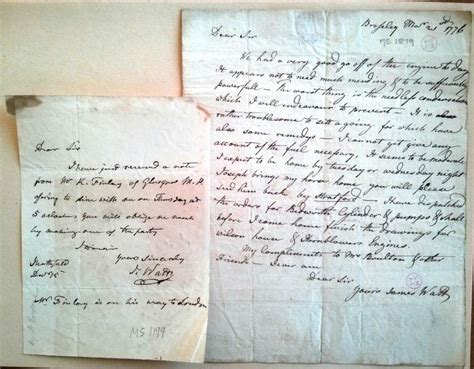 Dear Sir
I have just received a note
from Mr K. Finlay of Glasgow M.P.
offering to dine with me on Thursday at
5 oclock you will oblige me much
by making one of the party
I remain
Yours Sincerely
J. Watt
Heathfield
Mr Finlay is on his way to London
MS 1199
Broseley Mar 1776
MS 1879
Dear Sir
We had a very good go off of the engine to day
It appears not to need much mending & to be sufficiently
powerfull - The worst thing is the needless condensation
which I will endeavour to prevent - It is also
rather troublesome to set a going for which have
also some remedys - I cannot yet give any
account of the fuel necessary. It seems to be
I expect to be home by tuesday or wednesday night
Joseph brings my horse home you will please
send him back by Stratford I have dispatched
the orders for Bedworth Cylinder & pumps & shall
before I come home finish the drawings for
Wilson house & Hornblowers Engines.
My Compliments to Mrs Boulton & other
Friends - I am
Dear Sir
Yours James Watt